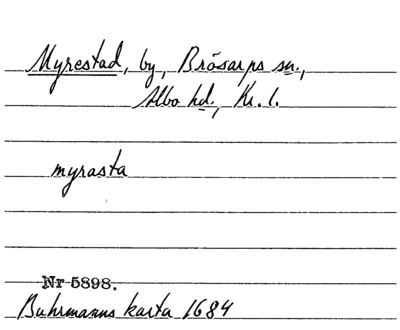 Myrestad, by, Brösarps sn.,
Albo hd., Kr. l.
myrasta
Nr 5898.
Buhrmanns karta 1684